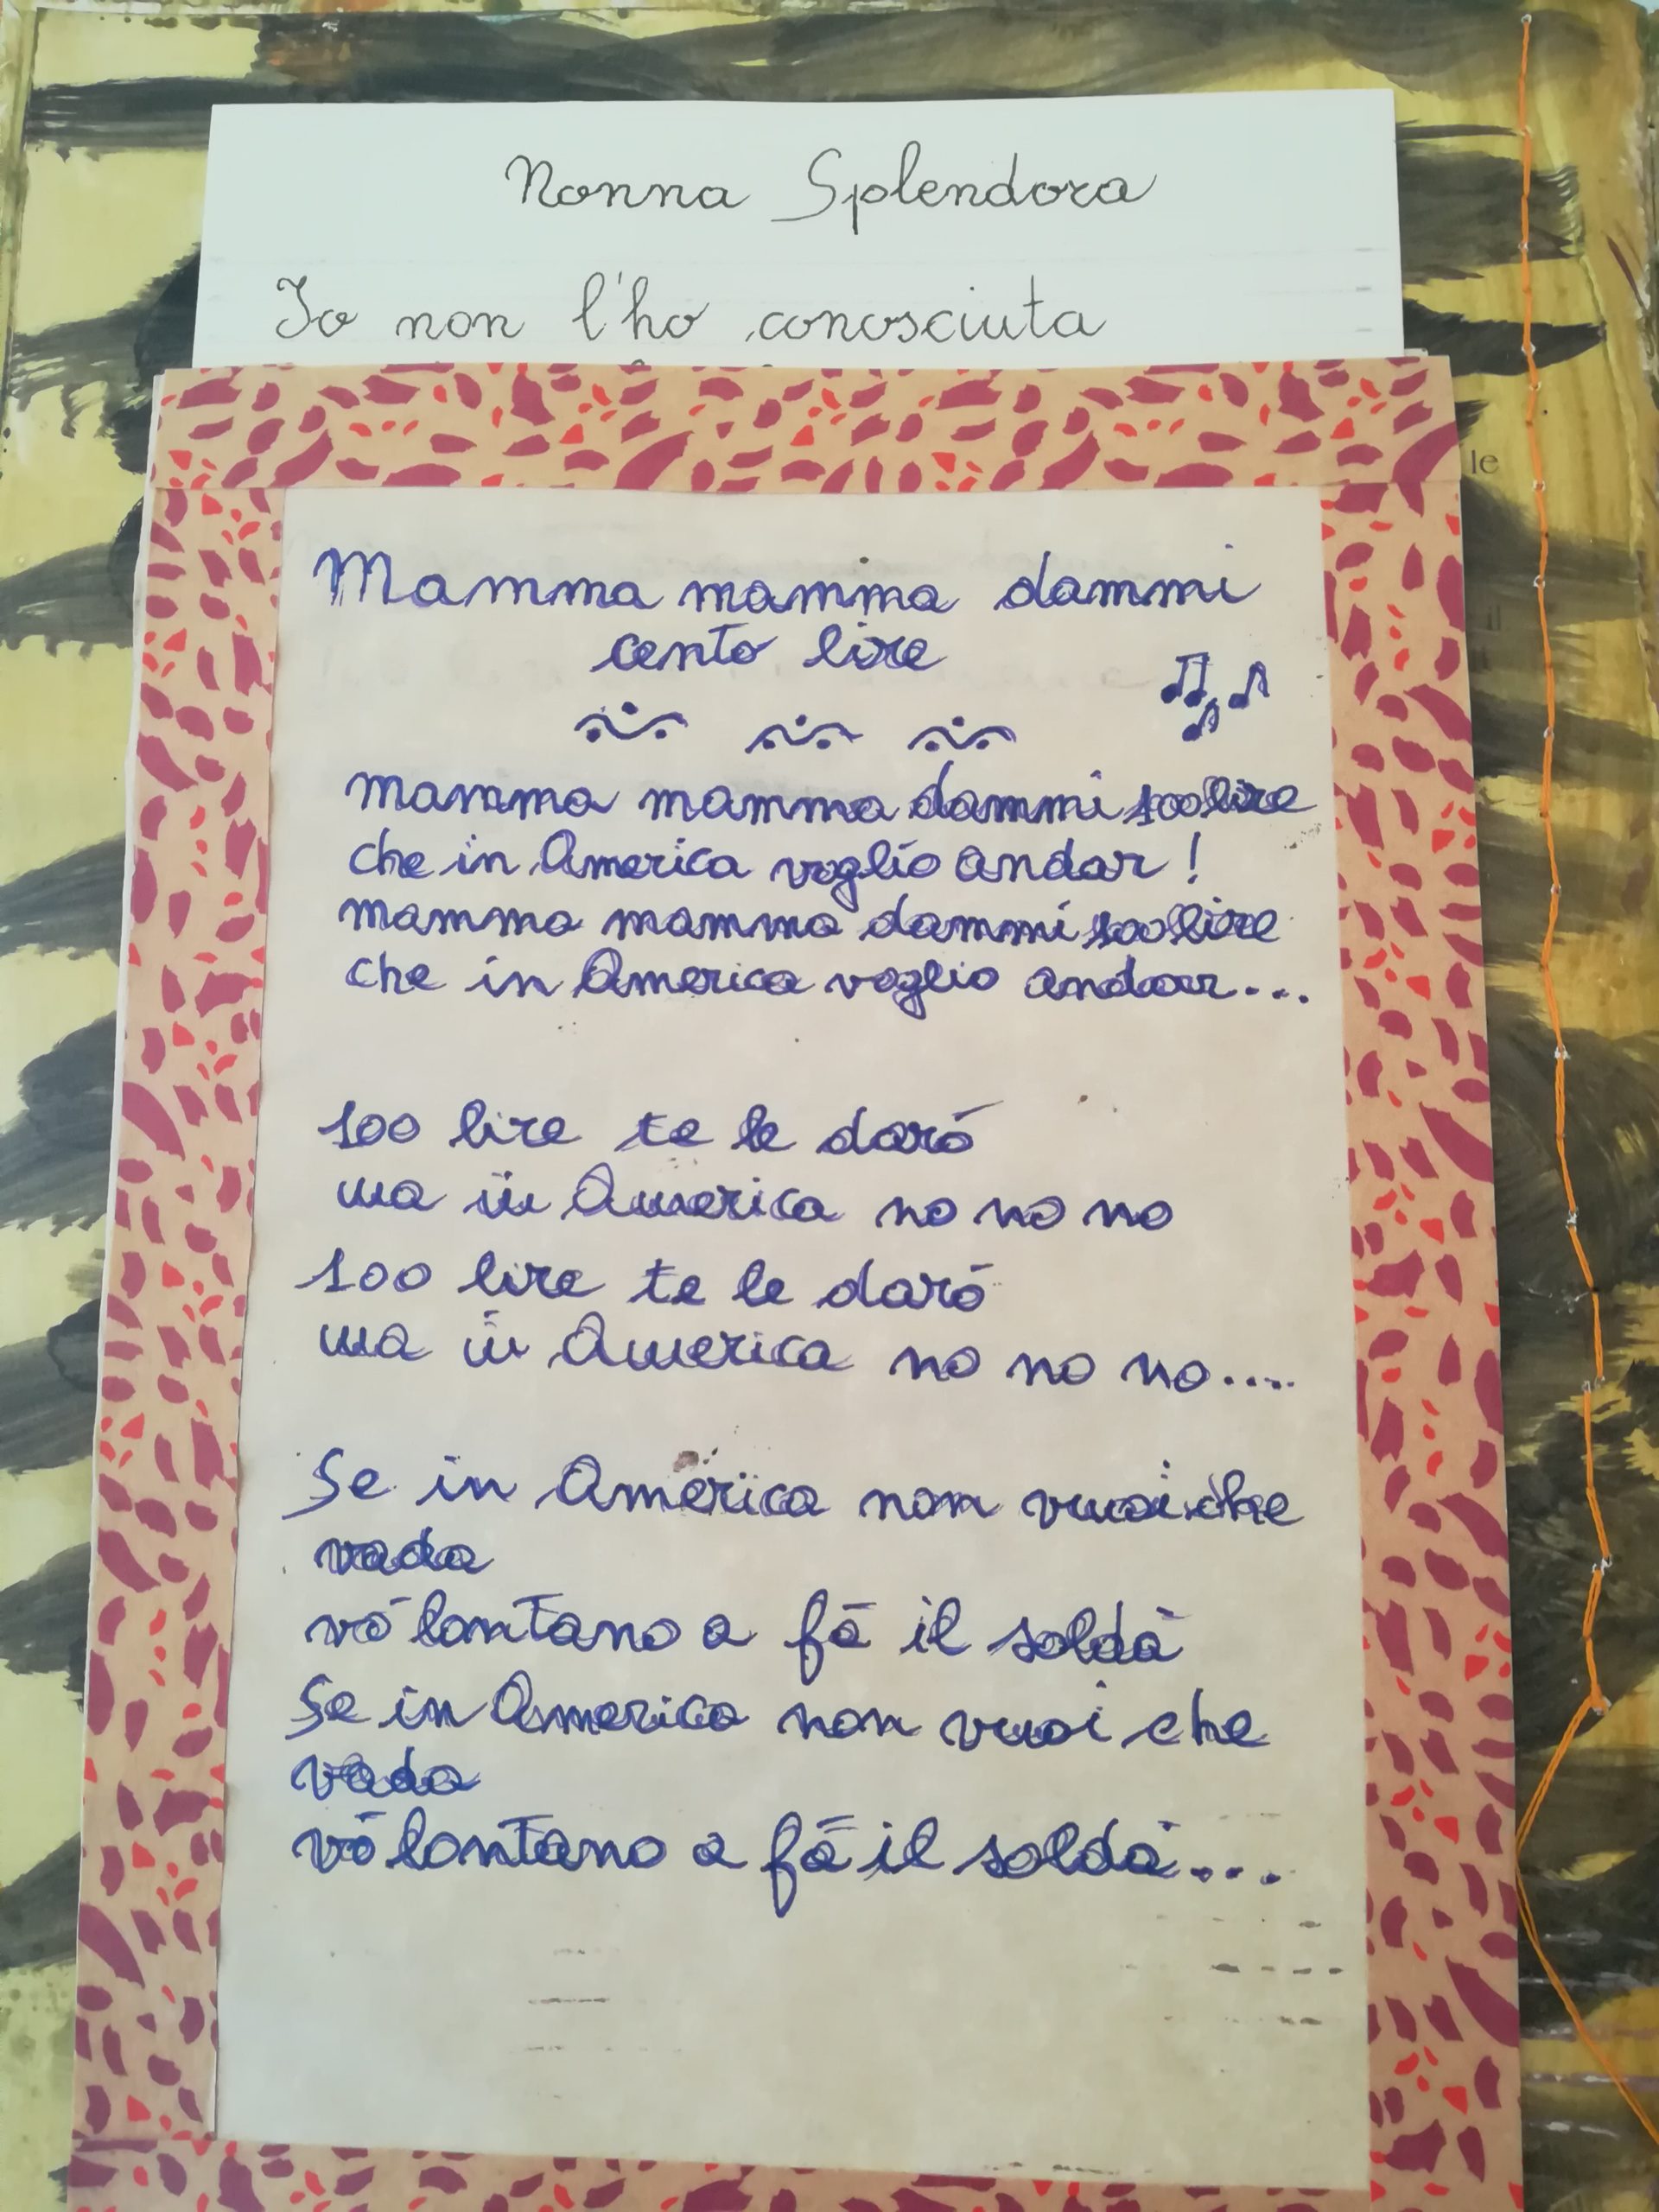 Nonna Splendora
Io non l'ho conosciuta
le
il
Mamma mamma dammi
cento lire
mamma mamma dammi 100 lire
che in America voglio andar!
mamma mamma dammi 100 lire
che in America voglio andar...
100 lire te le darò
ma in America no no no
100 lire te le darò
ma in America no no no....
Se in America non vuoi che
vada
vò lontano a fà il soldà
Se in America non vuoi che
vada
vò lontano a fà il soldà...